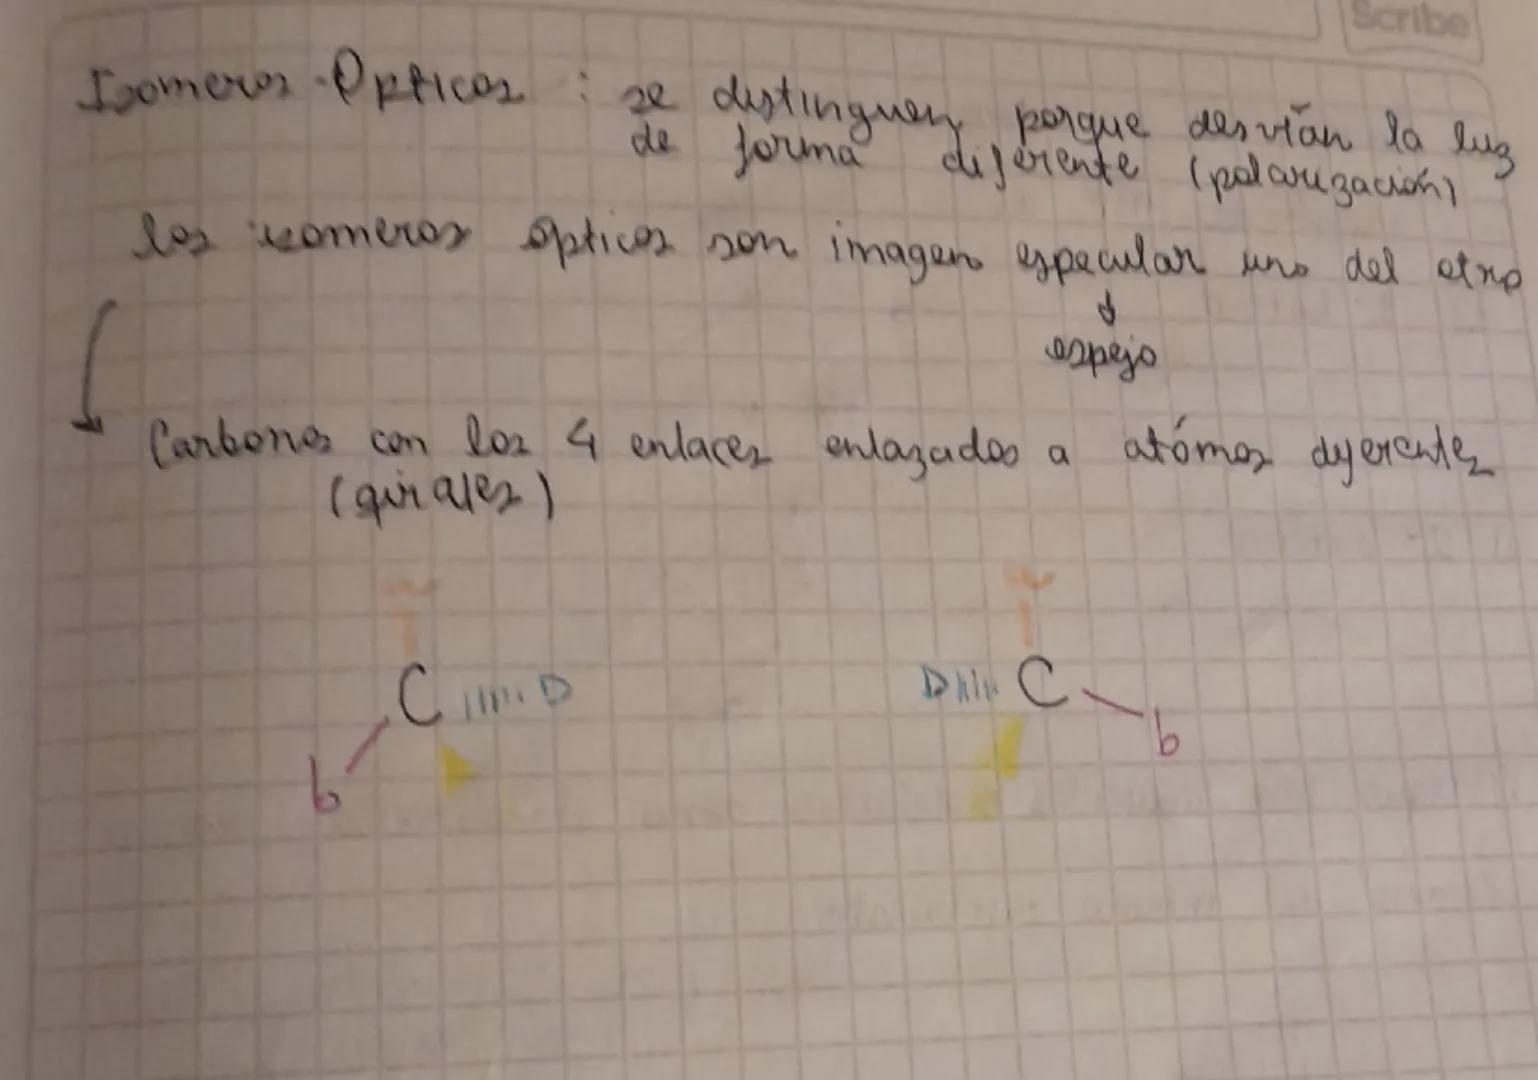 Scribe
Isomeros Opticos : se distinguen porque desvían la luz
de forma diferente (polarización)
los isomeros opticos son imagen especular uno del otro
espejo
Carbonos con los 4 enlaces enlazados a atómos diferentes
(quirales)
C D D C
b b